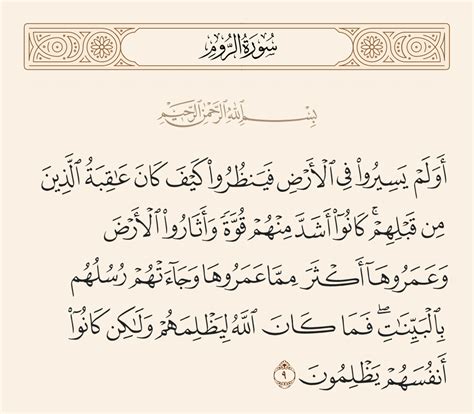 سُورَةُ الرُّومِ
بِسْمِ اللَّهِ الرَّحْمَٰنِ الرَّحِيمِ
أَوَلَمْ يَسِيرُوا۟ فِى ٱلْأَرْضِ فَيَنظُرُوا۟ كَيْفَ كَانَ عَـٰقِبَةُ ٱلَّذِينَ
مِن قَبْلِهِمْ ۚ كَانُوٓا۟ أَشَدَّ مِنْهُمْ قُوَّةً وَأَثَارُوا۟ ٱلْأَرْضَ
وَعَمَرُوهَآ أَكْثَرَ مِمَّا عَمَرُوهَا وَجَآءَتْهُمْ رُسُلُهُم
بِٱلْبَيِّنَـٰتِ ۖ فَمَا كَانَ ٱللَّهُ لِيَظْلِمَهُمْ وَلَـٰكِن كَانُوٓا۟
أَنفُسَهُمْ يَظْلِمُونَ ٩